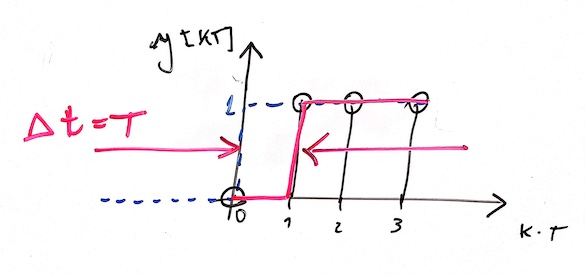 y[KT]
1
Δt=T
0
1
2
3
K·T